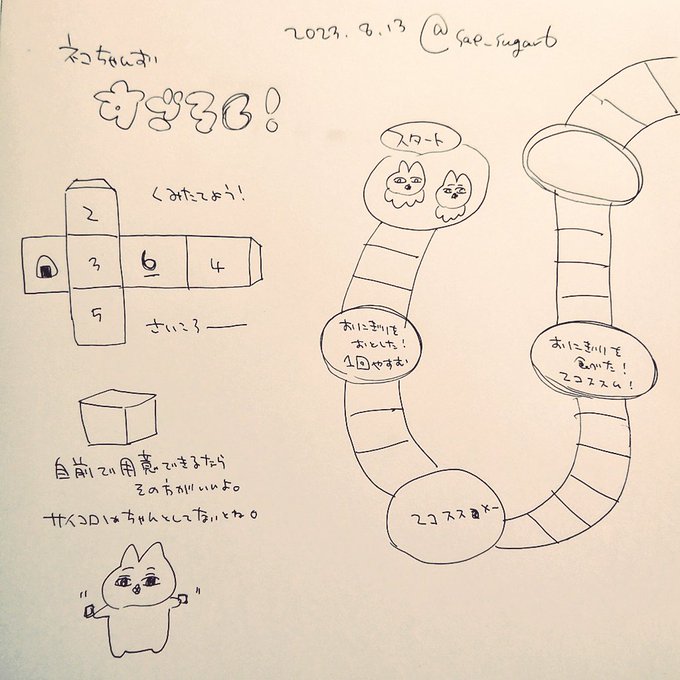 2023.8.13 @sae_sugar6
ネコちゃんず
すごろく!
くみたてよう!
2
3
6
4
5
さいころ
自前で用意できるなら
その方がいいよ。
サイコロはちゃんとしてないとね。
スタート
おにぎりを
おとした!
1回やすむ
2コススメー
おにぎりを
食べた!
2コススム!